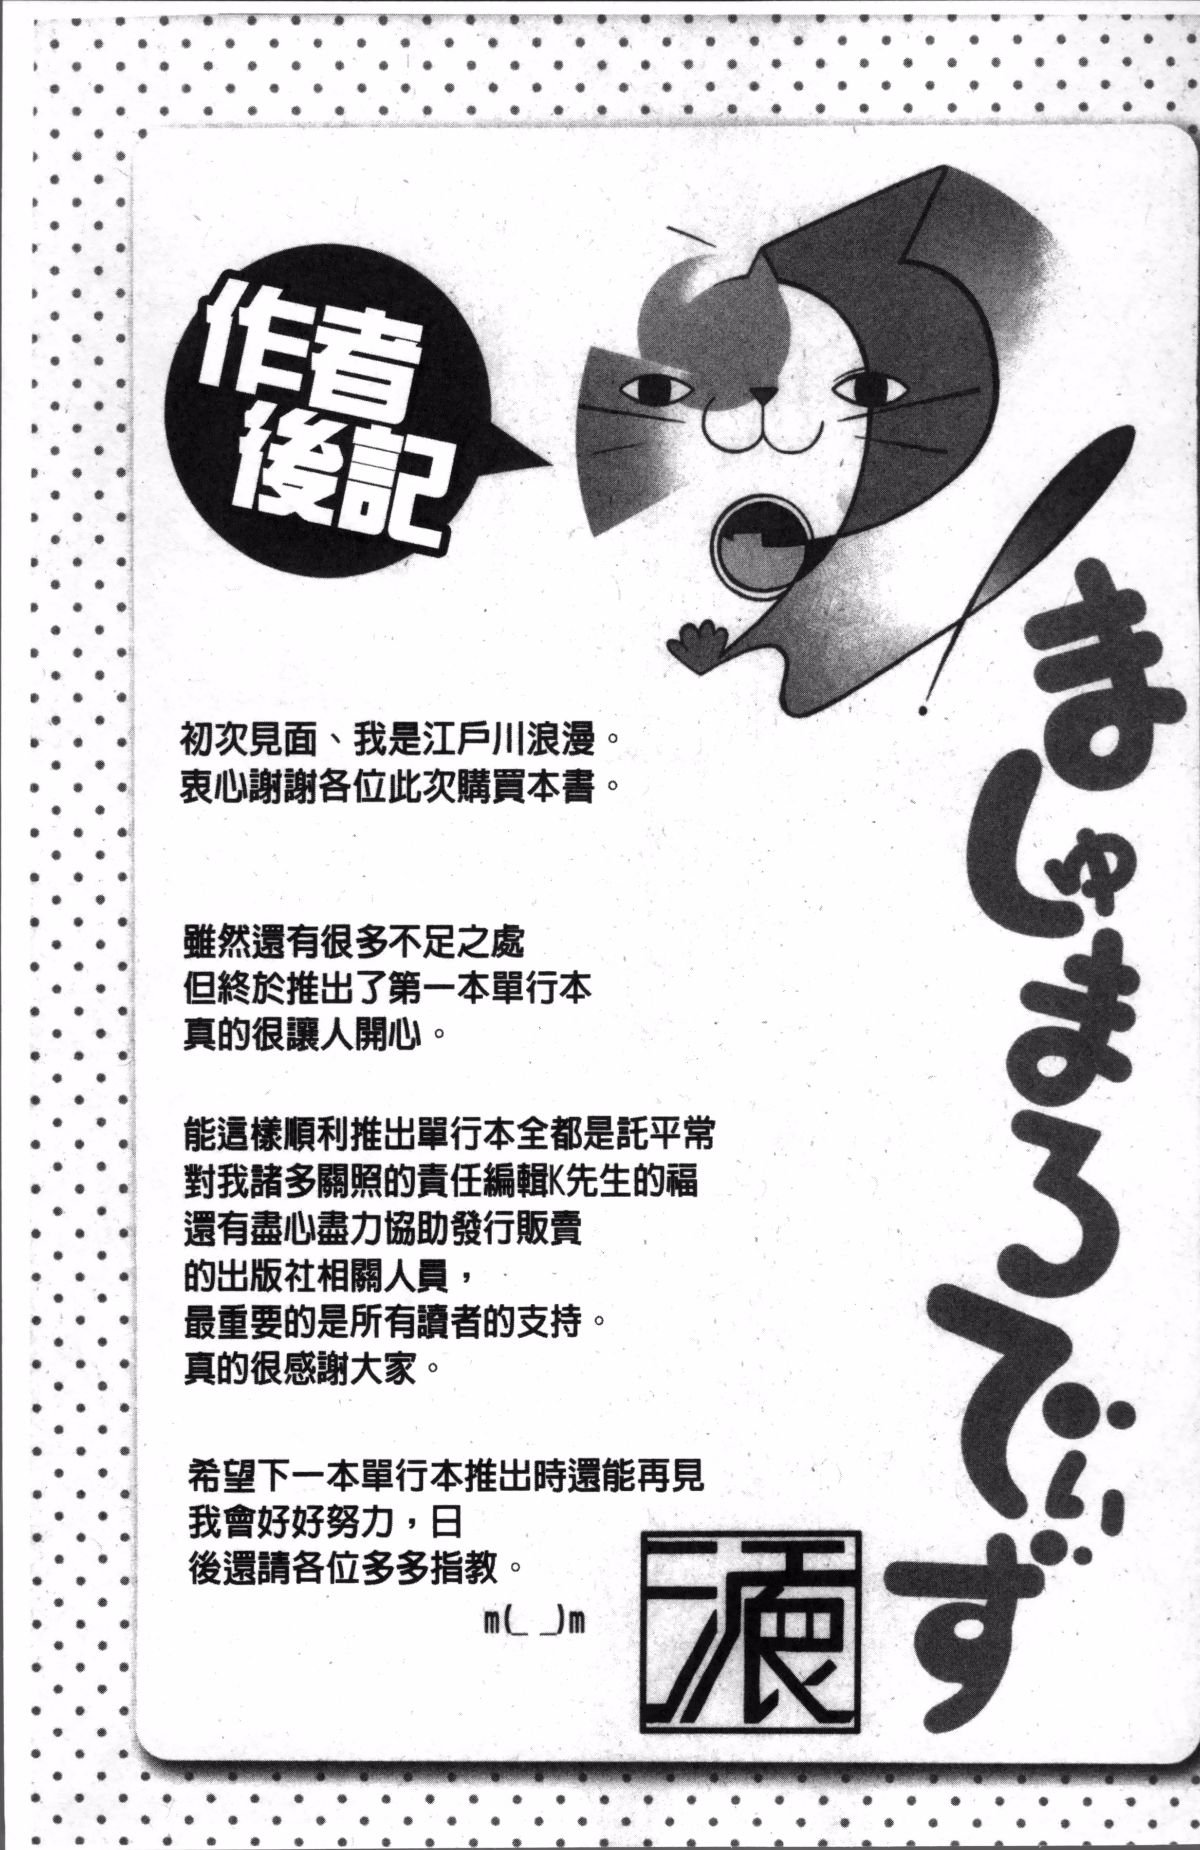 作者
後記
ましゅまろでぃず
初次見面、我是江戶川浪漫。
衷心謝謝各位此次購買本書。
雖然還有很多不足之處
但終於推出了第一本單行本
真的很讓人開心。
能這樣順利推出單行本全都是託平常
對我諸多關照的責任編輯K先生的福
還有盡心盡力協助發行販賣
的出版社相關人員，
最重要的是所有讀者的支持。
真的很感謝大家。
希望下一本單行本推出時還能再見
我會好好努力，日
後還請各位多多指教。
m(_ _)m